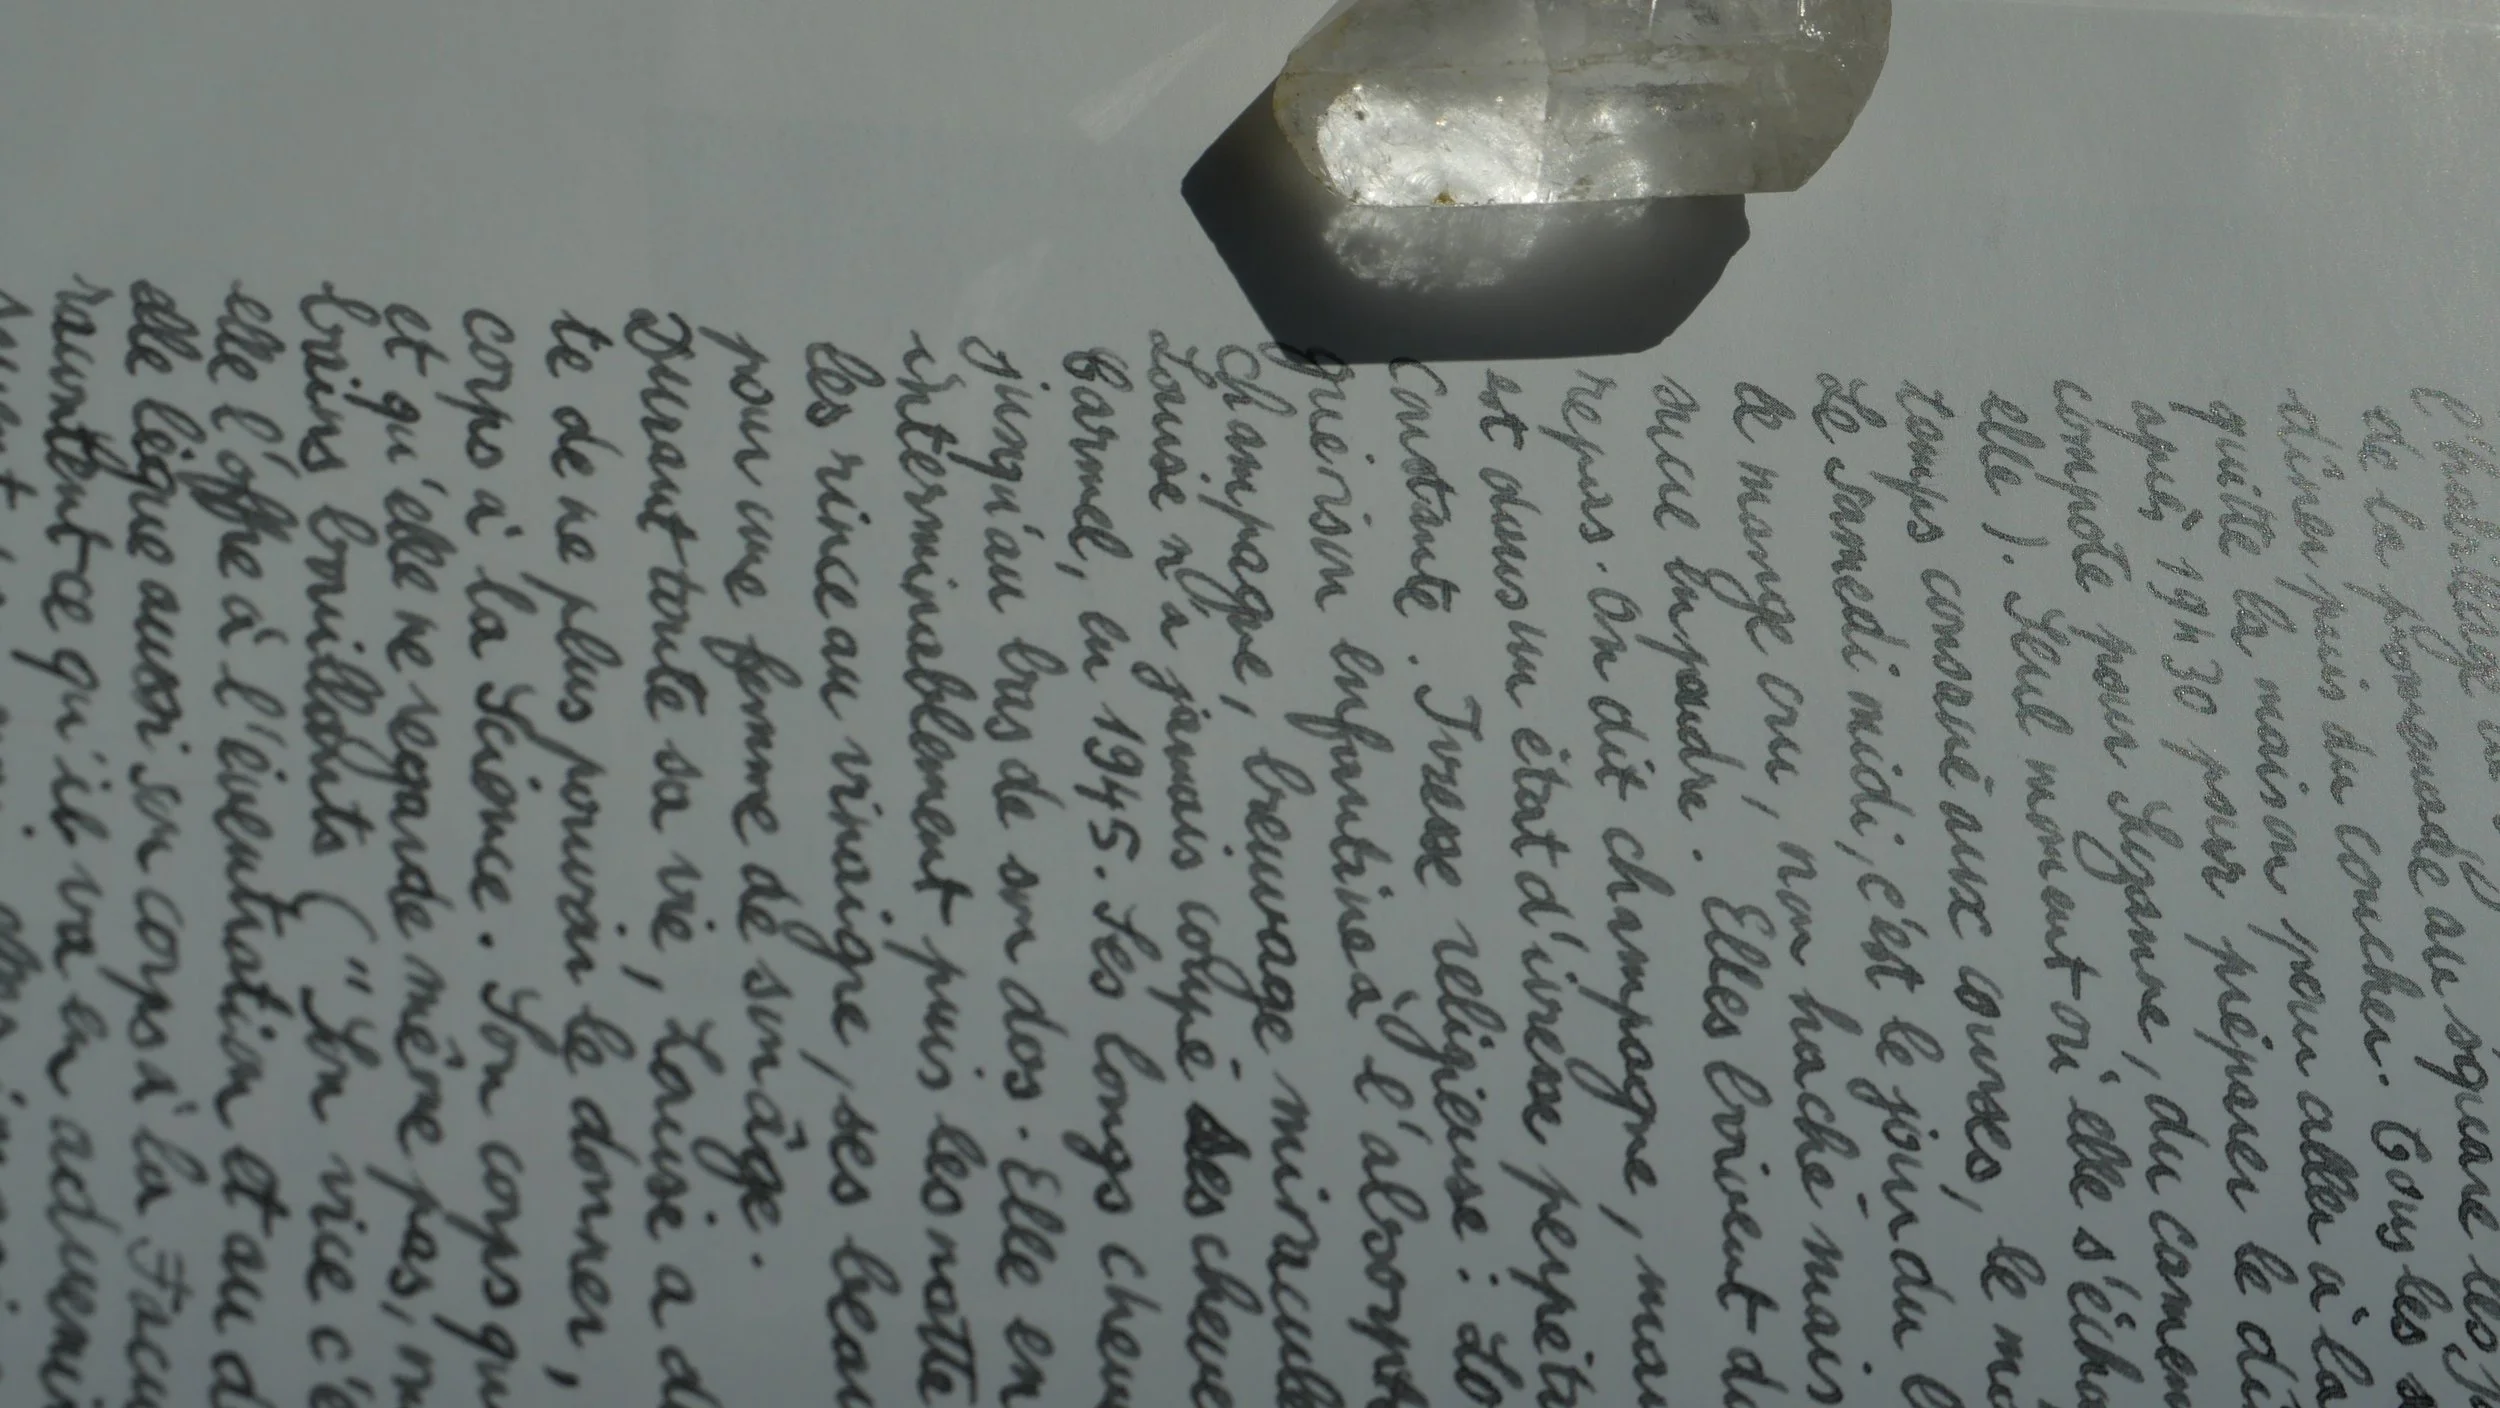 l'habillage
de la promenade au square les j
dîner puis du coucher. Tous les s
quitte la maison pour aller à la
après 19h30 pour préparer le dî
compote pour Suzanne, du camem
elle). Seul moment où elle s'écha
temps consacré aux courses, le ma
Le samedi midi, c'est le jour du b
de mange cru, non haché mais
sucre en poudre. Elles boivent du
repas. On dit champagne, mais
est dans un état d'ivresse perpétu
Constante. Ivresse religieuse : Lo
guérison enfantine à l'absorpt
champagne, breuvage miracule
Louise n'a jamais coupé ses cheve
Carmel, en 1945. Ses longs cheve
jusqu'au bas de son dos. Elle en
interminablement puis les natte
les rince au vinaigre, ses beau
pour une femme de son âge.
Durant toute sa vie, Louise a d
te de ne plus pouvoir le donner,
corps à la Science. Son corps qu
et qu'elle ne regarde même pas, n
bains brouillants ("Son vice c'é
elle l'offre à l'éventration et au d
elle lègue aussi son corps à la Facu
racontent ce qu'il va en advenir